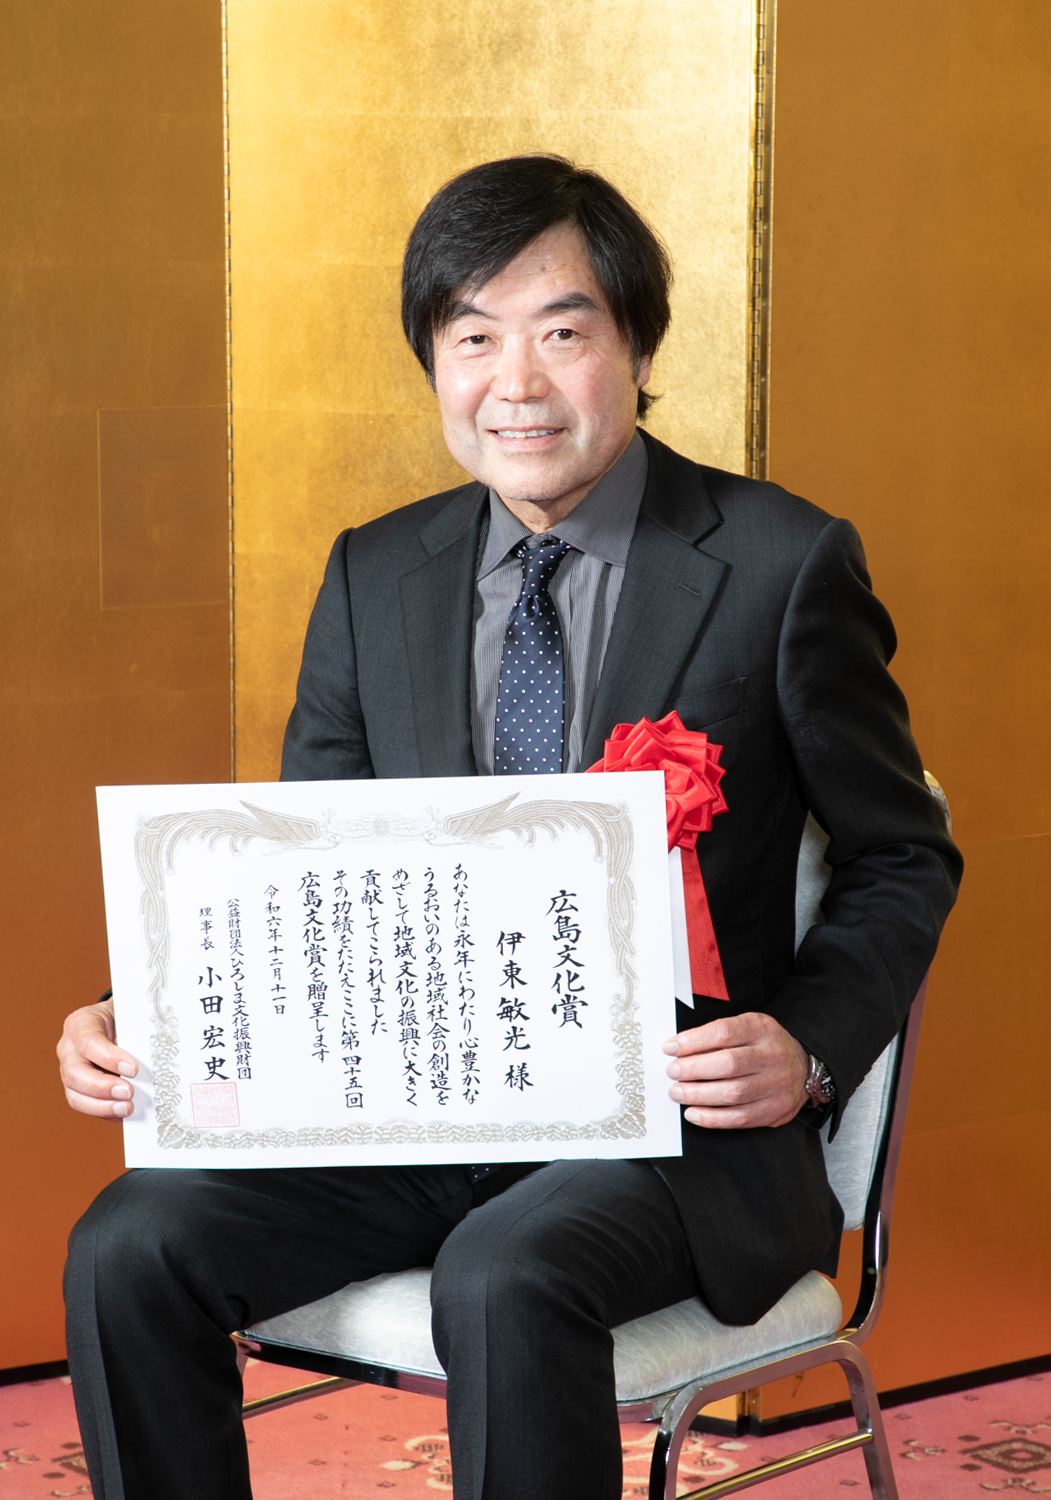 広島文化賞
伊東敏光様
あなたは永年にわたり心豊かな
うるおいのある地域社会の創造を
めざして地域文化の振興に大きく
貢献してこられました
その功績をたたえここに第四十五回
広島文化賞を贈呈します
令和六年十二月十一日
公益財団法人ひろしま文化振興財団
理事長 小田宏史